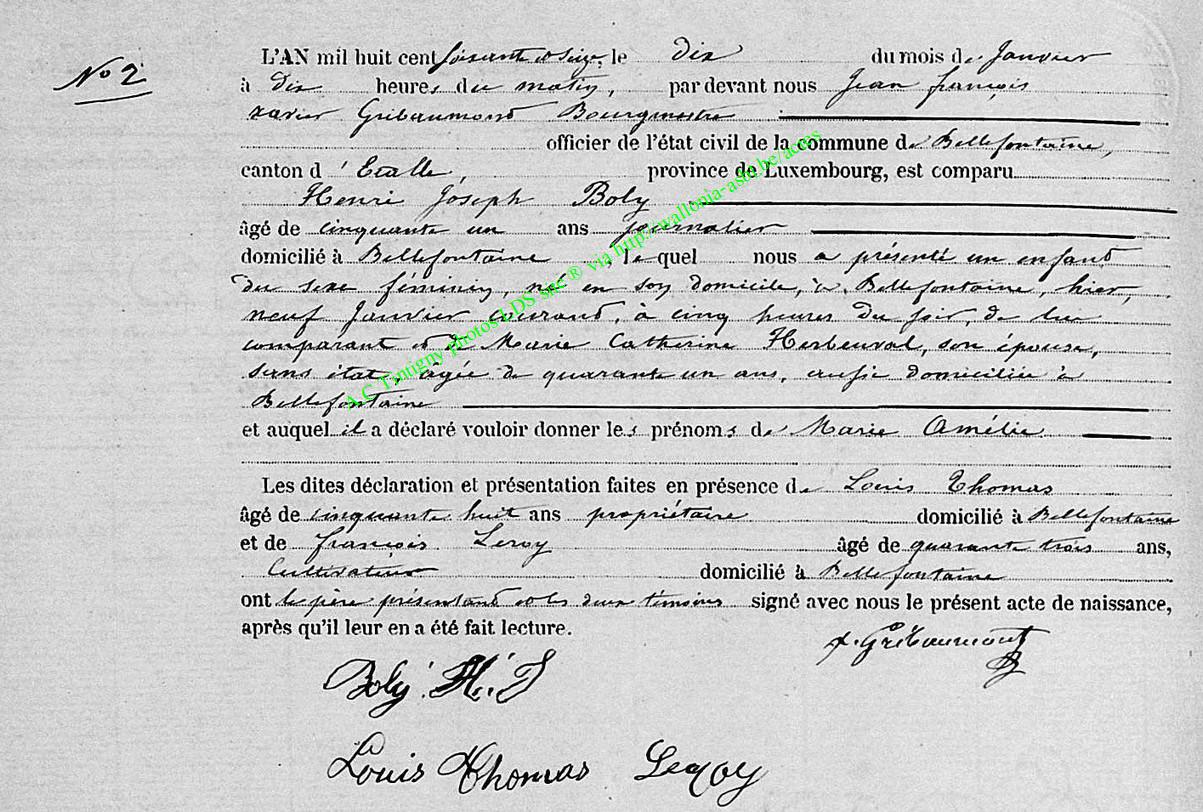 No 2
L'AN mil huit cent soixante et seize, le dix du mois de Janvier
à dix heures du matin, par devant nous Jean françois
xavier Gribaumont Bourgmestre
officier de l'état civil de la commune de Bellefontaine,
canton d'Etalle, province de Luxembourg, est comparu
Henri Joseph Boly
âgé de cinquante un ans journalier
domicilié à Bellefontaine, lequel nous a présenté un enfant
du sexe féminin, né en son domicile, à Bellefontaine, hier,
neuf Janvier courant, à cinq heures du soir, de lui
comparant et de Marie Catherine Herbeuval, son épouse,
sans état, âgée de quarante un ans, aussi domiciliée à
Bellefontaine
et auquel il a déclaré vouloir donner les prénoms de Marie Amélie
Les dites déclaration et présentation faites en présence de Louis Thomas
âgé de cinquante huit ans propriétaire domicilié à Bellefontaine
et de françois Leroy âgé de quarante trois ans,
Cultivateur domicilié à Bellefontaine
ont le père présentant et les deux témoins signé avec nous le présent acte de naissance,
après qu'il leur en a été fait lecture.
x. Gribaumont
Boly. H. J
Louis Thomas Leroy
A.C Tintigny photos LDS srce® via http://wallonia-asbl.be/acces